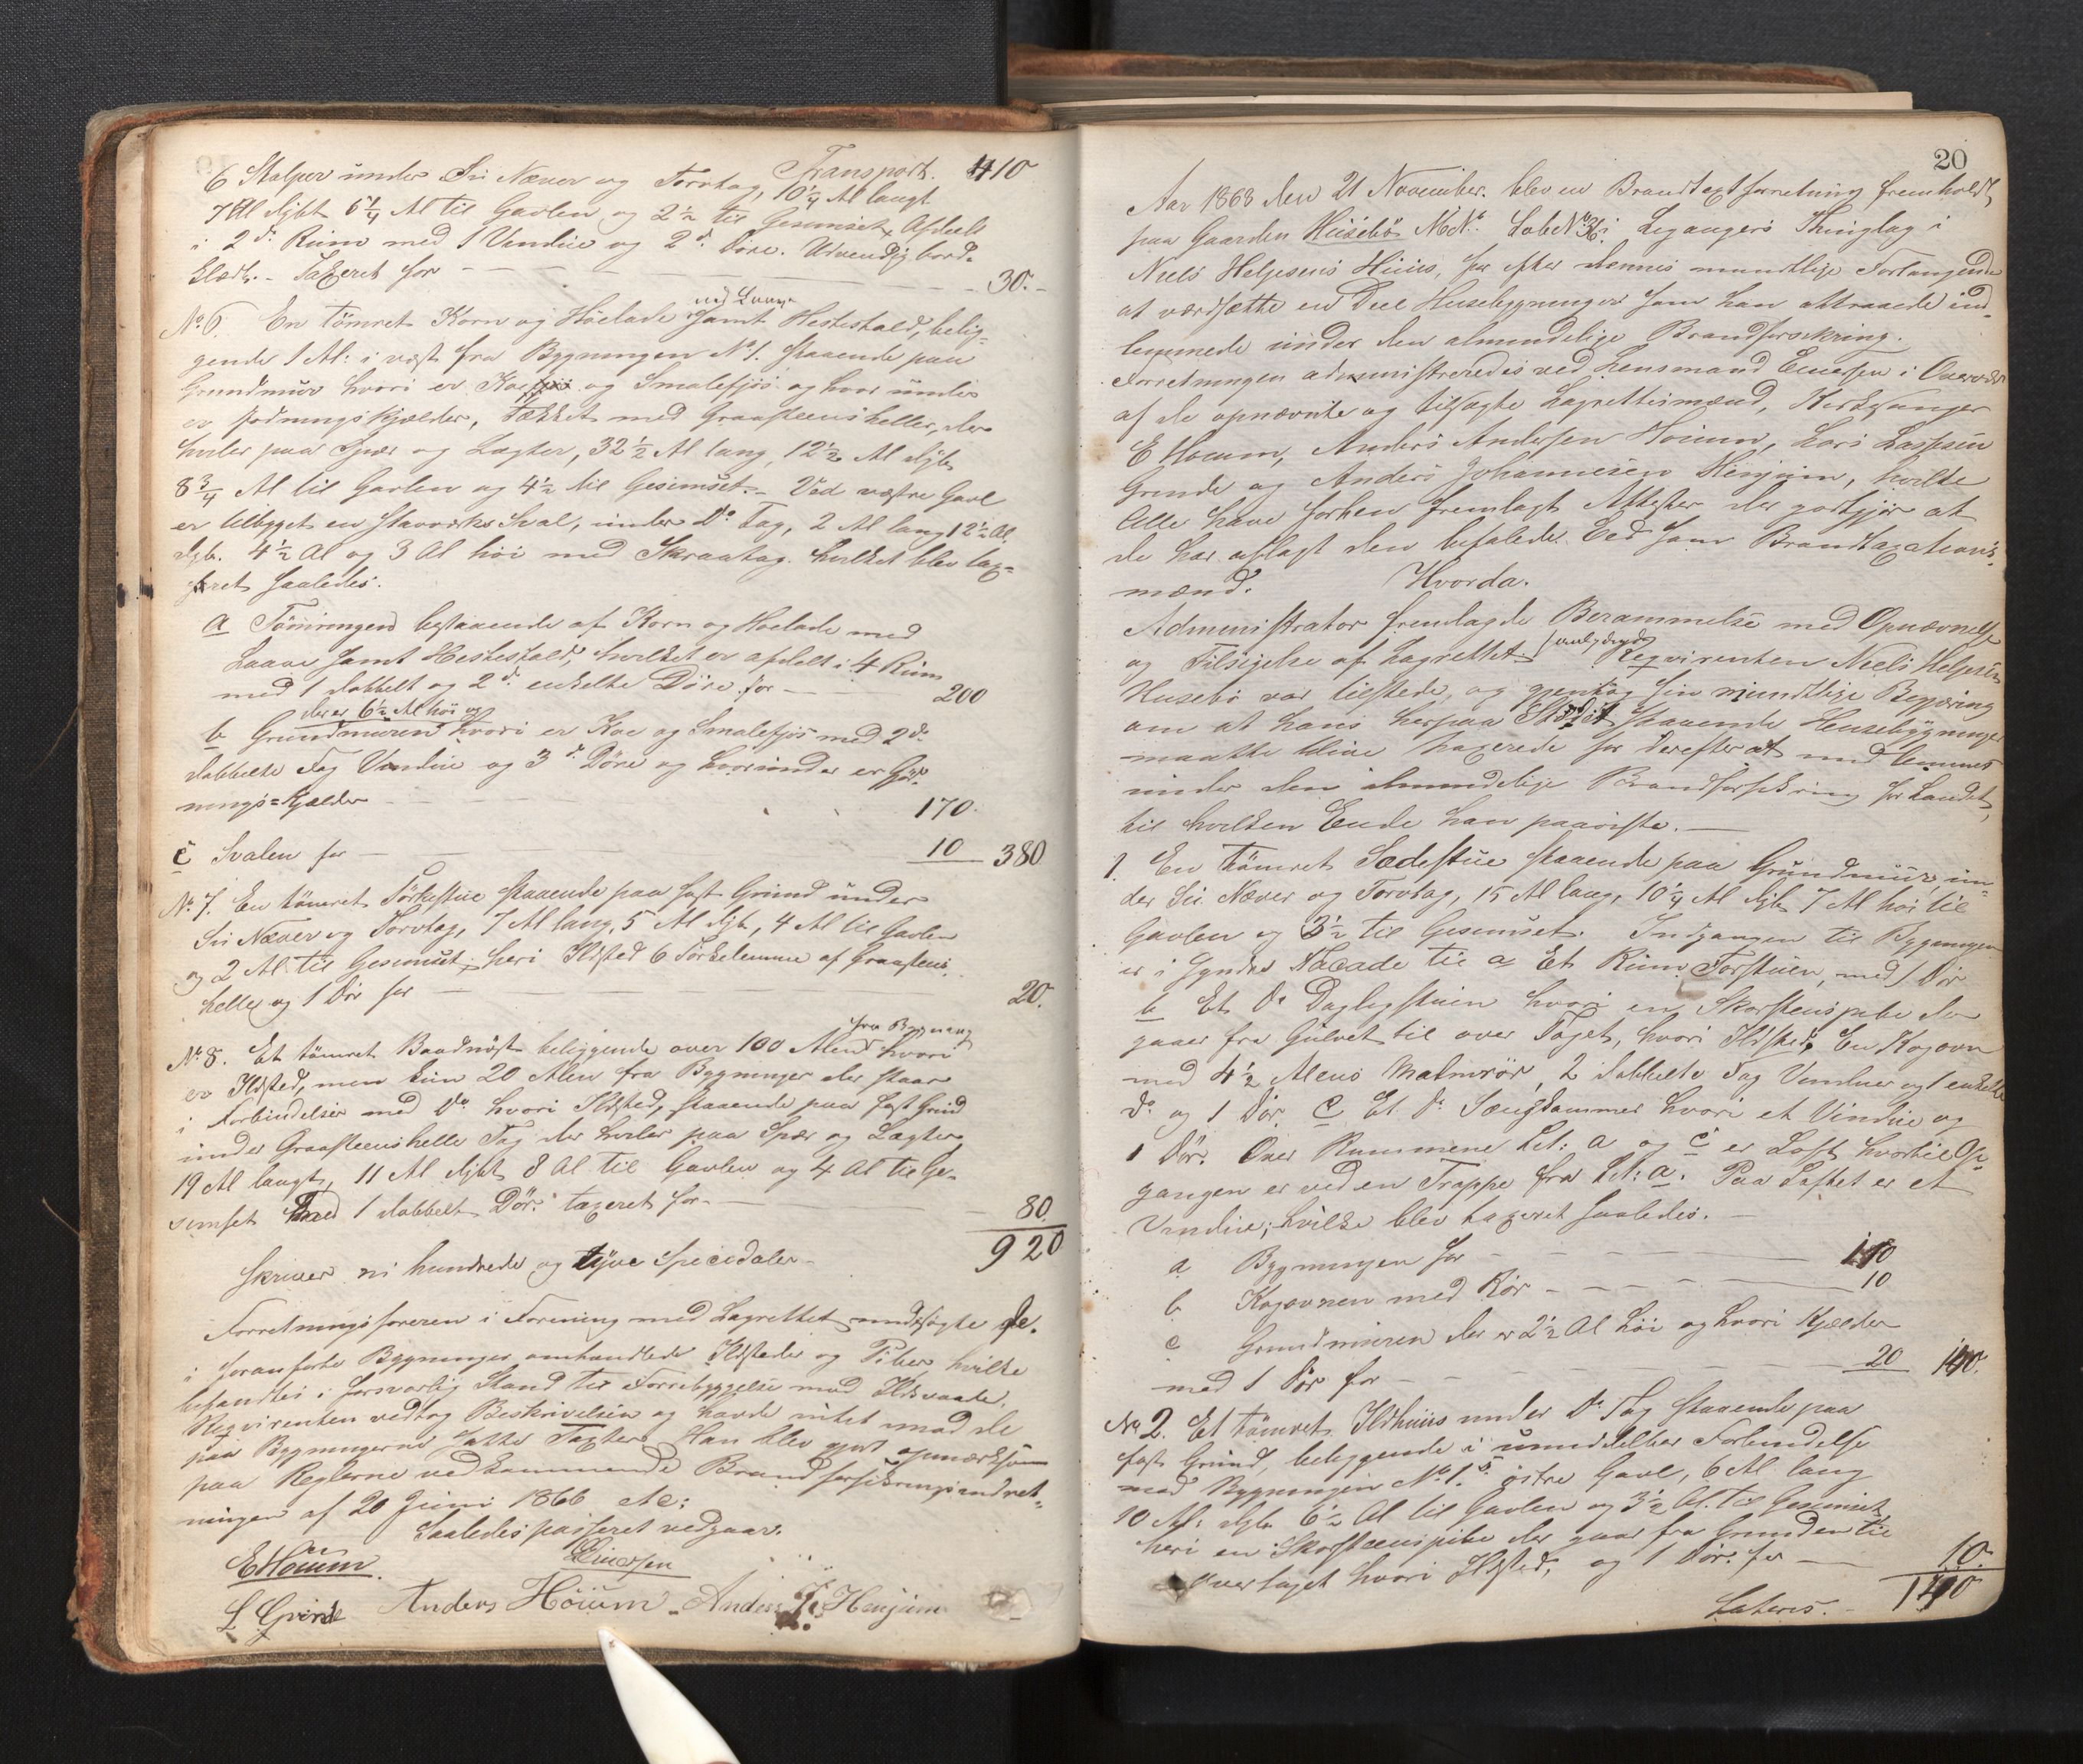 Transport. 410
6 Stolper under Su Næver og Torvtag, 10 1/4 Al langt
7 Al dybt 6 1/4 Al til Gavlen og 2 1/2 til Gesimset, Afdeelt
i 2de Rum med 1 Vindue og 2de Döre. Udvendig bord-
klædt. - Taxeret for - - - 30.-
No 6. En tömret Korn og Höelade ved Laave samt Hestestald, belig-
gende 1 Al: i vest fra Bygningen No 1. staaende paa
Grundmuur hvori er og Smalefjös og hvor under
er Gjödningskjælder, Tækket med Graasteenshelle, der
hviler paa Spær og Lægter, 32 1/2 Al lang, 12 1/2 Al dyb
8 3/4 Al til Gavlen og 4 1/2 til Gesimset. - Ved vestre Gavl
er tilbygget en Stavværks Sval, under Do Tag, 2 Al lang 12 1/2 Al
dyb. 4 1/2 Al og 3 Al höi med Skraatag. hvilket blev tax-
eret saaledes:
a Tömringen bestaaende af Korn og Hoelade med
Laave samt Hestestald, hvilket er afdelt i 4 Rum
med 1 dobbelt og 2de enkelte Döre for - 200
der er 6 1/2 Al höi og
b Grundmuren hvori er Koe og Smalefjös med 2de
dobbelte Fag Vindue og 3de Döre og hvorunder er Gjöd-
nings=Kjælder - - - 170.
c Svalen for - - - 10 380
No 7. En tömret Törkestue staaende paa fast Grund under
Su Næver og Torvtag, 7 Al lang, 5 Al dyb, 4 Al til Gavlen
og 2 Al til Gesimset, heri Ildsted 6 Törkelemme af Graasteens
helle og 1 Dör for - - - 20.
No 8. Et tömret Baadnöst beliggende over 100 Alen fra Bygning hvori
er Ildsted, men kun 20 Alen fra Bygninger der staar
i Forbindelse med Do hvori Ildsted, staaende paa fast Grund
under Graasteenshelle Tag der hviler paa Spær og Lægter
19 Al langt, 11 Al dybt 8 Al til Gavlen og 4 Al til Ge-
simset med 1 dobbelt Dör. taxeret for - - 80.
920
skriver ni hundrede og tyve Speciedaler -
Forretningsforeren i Forening med Lagrettet undersögte de
i foranförte Bygninger omhandlede Ildsteder og Piber, hvilke
befandtes i forsvarlig Stand til Forrebyggelse mod Ildsvaade.
Reqvirenten vedtog Beskrivelsen og havde intet mod de
paa Bygningerne satte Taxter. Han blev gjort opmærksom
paa Reglerne vedkommende Brandforsikringsindret-
ningen af 20 Juni 1866 etc:
Saaledes passeret vedgaar.
EHöium. Einersen
L Grinde Anders Höium - Anders Henjum
20
Aar 1868 den 21 November. blev en Brandtaxtforretning fremholdt
paa Gaarden Huusebö M.No. LobeNo 36 i Leganger Thinglag i
Niels Helgesens Huus, for efter dennes mundtlige Forlangende
at værdsætte en Deel Husebygninger som han attraaede ind-
lemmede under den almindelige Brandforsikring.
Forretningen administreredes ved Lensmand Einersen i Overvær
af de opnævnte og tilsagte Lagrettesmænd, Kirkesanger
E Hoium, Anders Andersen Hoium, Lars Lassesen
Grinde og Anders Johannesen Henjum, hvilke
Alle have forhen fremlagt Attester der godtgjör at
de har aflagt den befalede Eed som Brandtaxations-
mænd. Hvorda.
Administrator fremlagde Berammelse med Opnævnelse
og Tilsigelse af Lagrettet Reqvirenten Niels Helgesen
Husebö var tilstede, og gjentog sin mundtlige Begjæring
om at hans herpaa Stedet staaende Husebygninger
maatte blive taxerede for derefter at indlemmes
under den almindelige Brandforsikring for Landet,
til hvilken Ende han paaviste. -
1. En tömret Sædestue staaende paa Grundmuur, un-
der Su Næver og Torvtag, 15 Al lang, 10 1/4 Al dyb 7 Al höi til
Gavlen og 3 1/2 til Gesimset. Indgangen til Bygningen
er i Syndre Facade til a Et Rum, Forstuen, med 1 Dör
b Et Do Dagligstuen hvori en Skorsteenspibe der
gaaer fra Gulvet til over Taget, hvori Ildsted. En Kogovn
med 4 1/2 Alens Malmrör, 2 dobbelte Fag Vinduer og 1 enkelte
Do og 1 Dör. C Et Do Sængkammer hvori et Vindue og
1 Dör. Over Rummene Lit: a og c er Loft hvortil Op-
gangen er ved en Trappe fra Lit: a. Paa Loftet er et
Vindue; hvilke blev taxeret saaledes. -
a Bygningen for - - - 110
b Kogovnen med Rör - - - 10
c Grundmuren der er 2 1/2 Al höi og hvori Kjælder
med 1 Dör for - - - 20 140.
No 2. Et tömret Ildhuus under Do Tag staaende paa
fast Grund, beliggende i umiddelbar Forbindelse
med Bygningen No 1.s östre Gavl, 6 Al lang
10 Al: dyb 6 1/2 Al til Gavlen og 3 1/2 Al. til Gesimset
heri en Skorsteenspibe der gaar fra Grunden til
over taget hvori Ildsted, og 1 Dör. for - 10.
Lateris. -